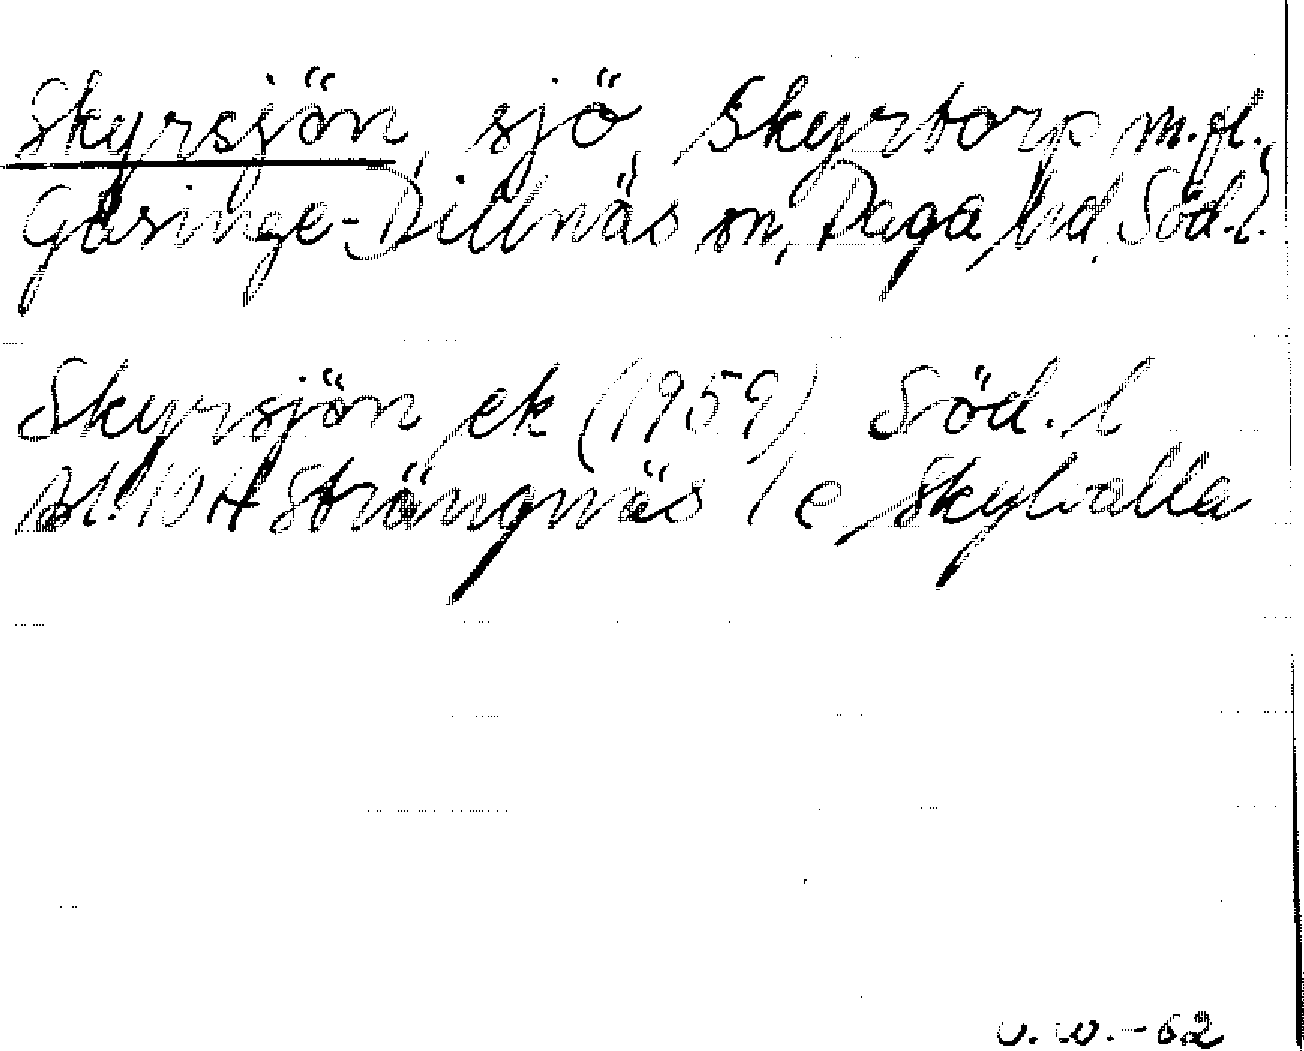 Skyrsjön, sjö, Skyrtorp m.fl.,
Gåsinge-Dillnäs sn, Daga hd, Söd.l.
Skyrsjön ek (1959) Söd. l
bl. 10 H Strängnäs / c Skylvalla
U. W. - 62